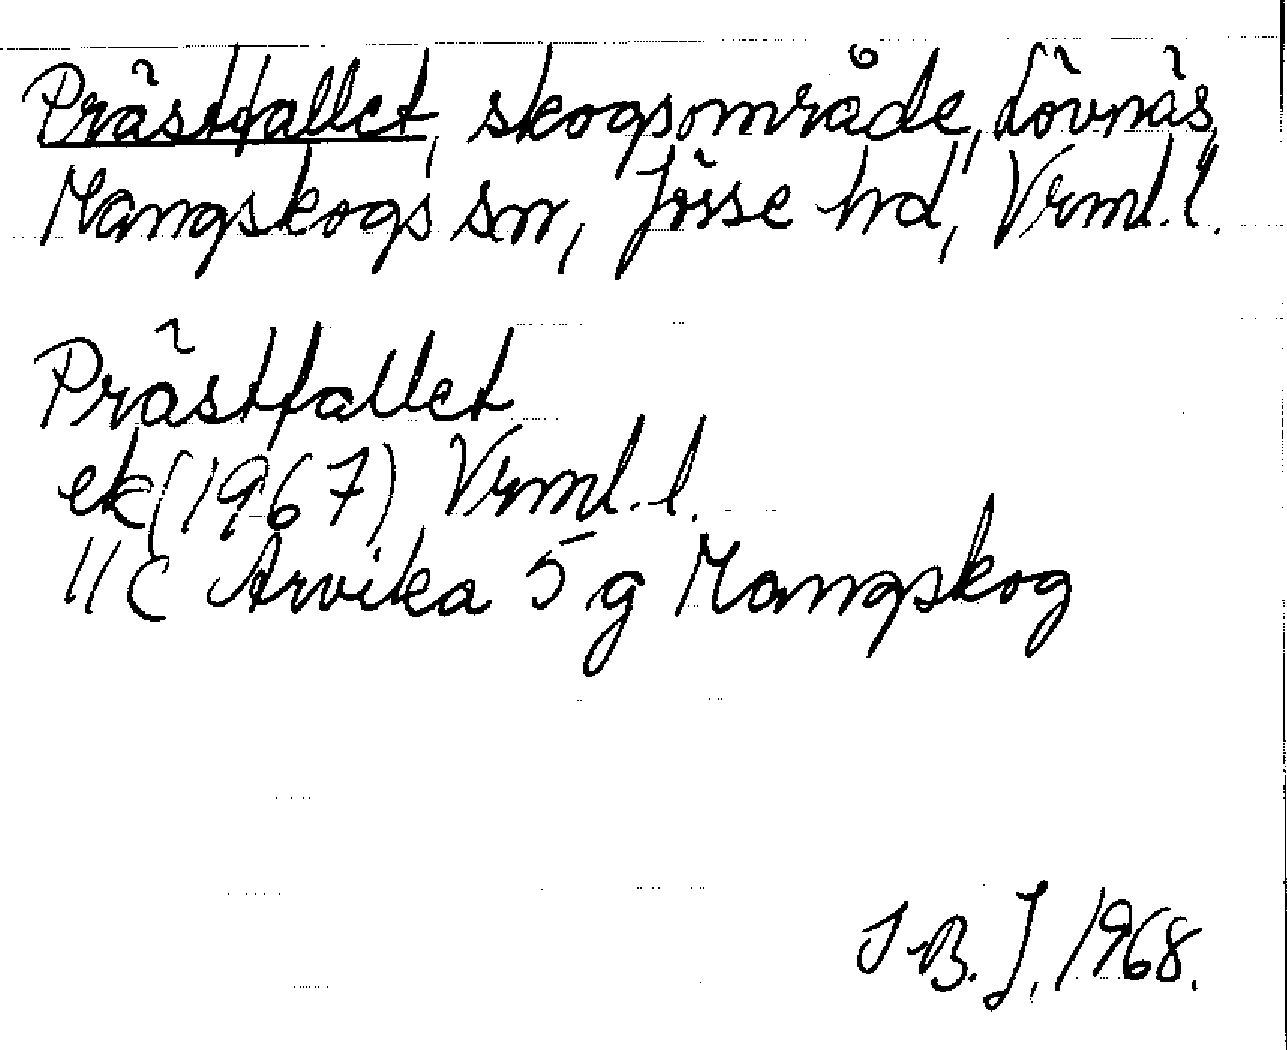 Prästfallet, skogsområde, Lövnäs,
Mangskogs sn, Jösse hd, Vrml. l.
Prästfallet
ek (1967) Vrml. l.
11C Arvika 5 g Mangskog
I-B. J. 1968.